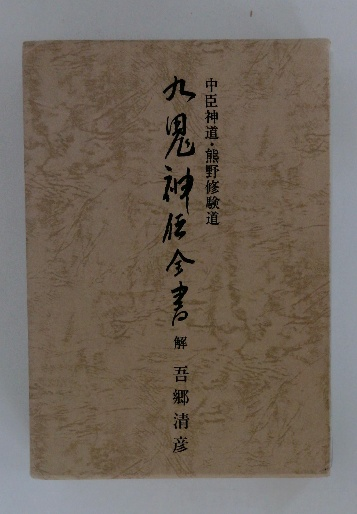 中臣神道・熊野修験道
九鬼神伝全書
解 吾郷清彦